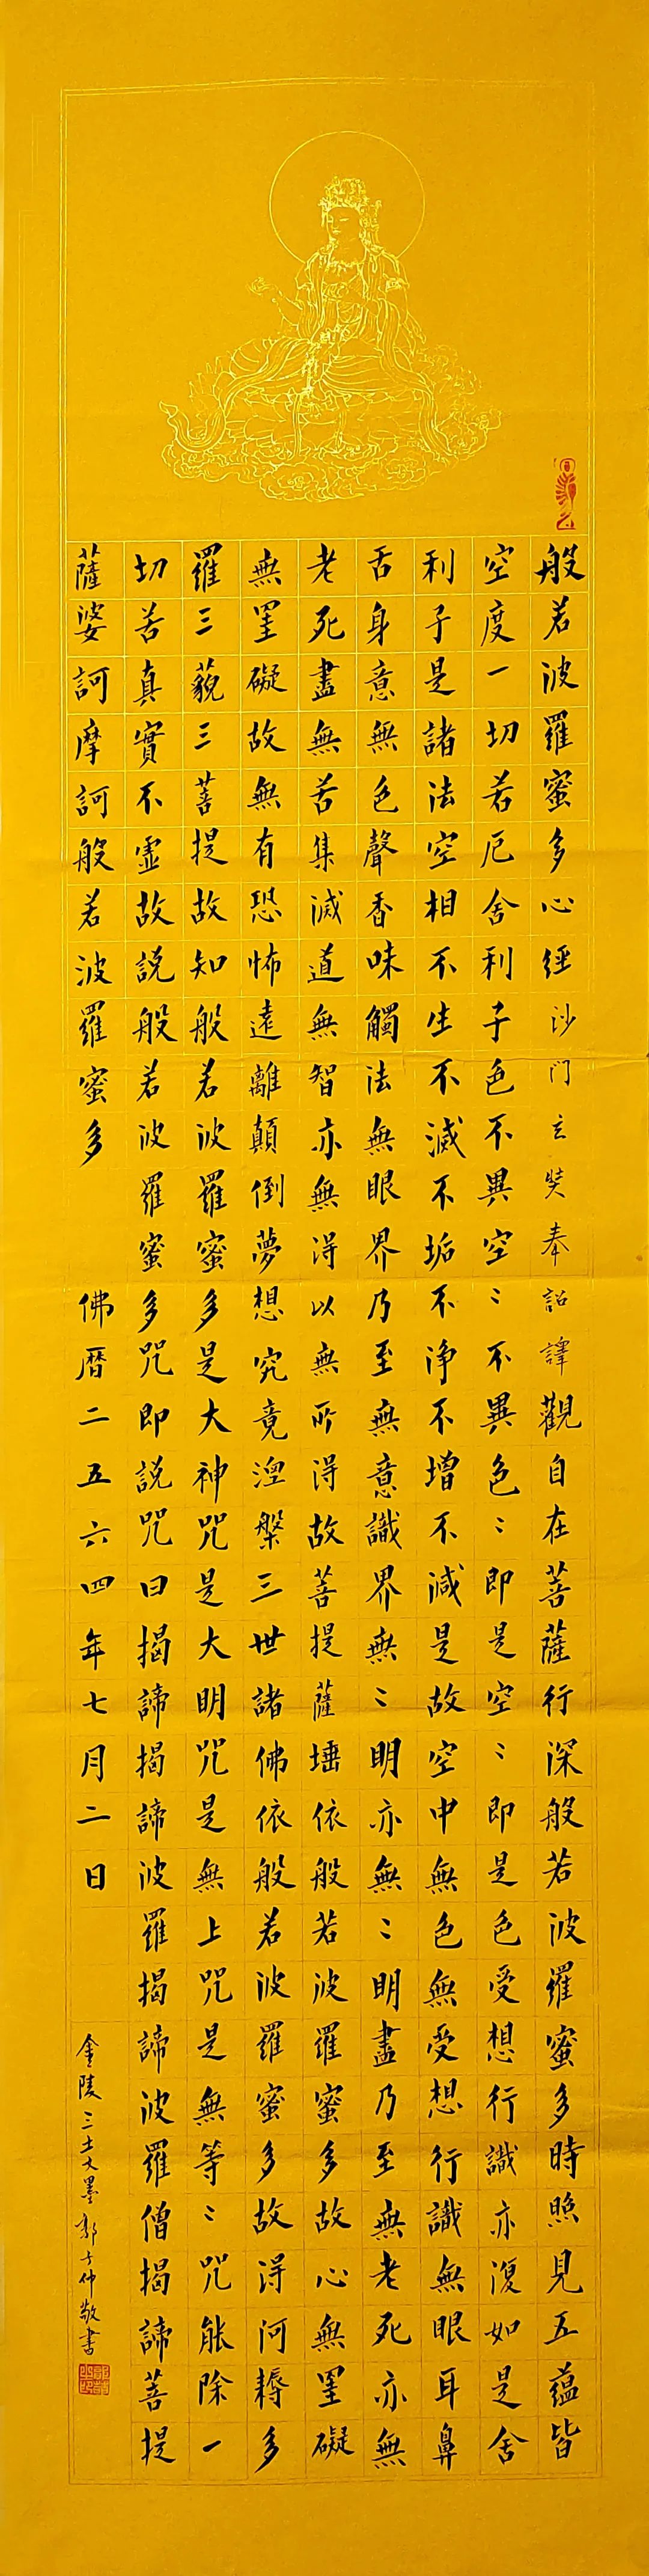 般若波羅蜜多心經沙門玄奘奉詔譯觀自在菩薩行深般若波羅蜜多時照見五蘊皆
空度一切苦厄舍利子色不異空〻不異色〻即是空〻即是色受想行識亦復如是舍
利子是諸法空相不生不滅不垢不淨不增不減是故空中無色無受想行識無眼耳鼻
舌身意無色聲香味觸法無眼界乃至無意識界無〻明亦無〻明盡乃至無老死亦無
老死盡無苦集滅道無智亦無得以無所得故菩提薩埵依般若波羅蜜多故心無罣礙
無罣礙故無有恐怖遠離顛倒夢想究竟涅槃三世諸佛依般若波羅蜜多故得阿耨多
羅三藐三菩提故知般若波羅蜜多是大神咒是大明咒是無上咒是無等〻咒能除一
切苦真實不虛故說般若波羅蜜多咒即說咒曰揭諦揭諦波羅揭諦波羅僧揭諦菩提
薩婆訶摩訶般若波羅蜜多 佛曆二五六四年七月二日
金陵三士大墨 郭 仲敬書